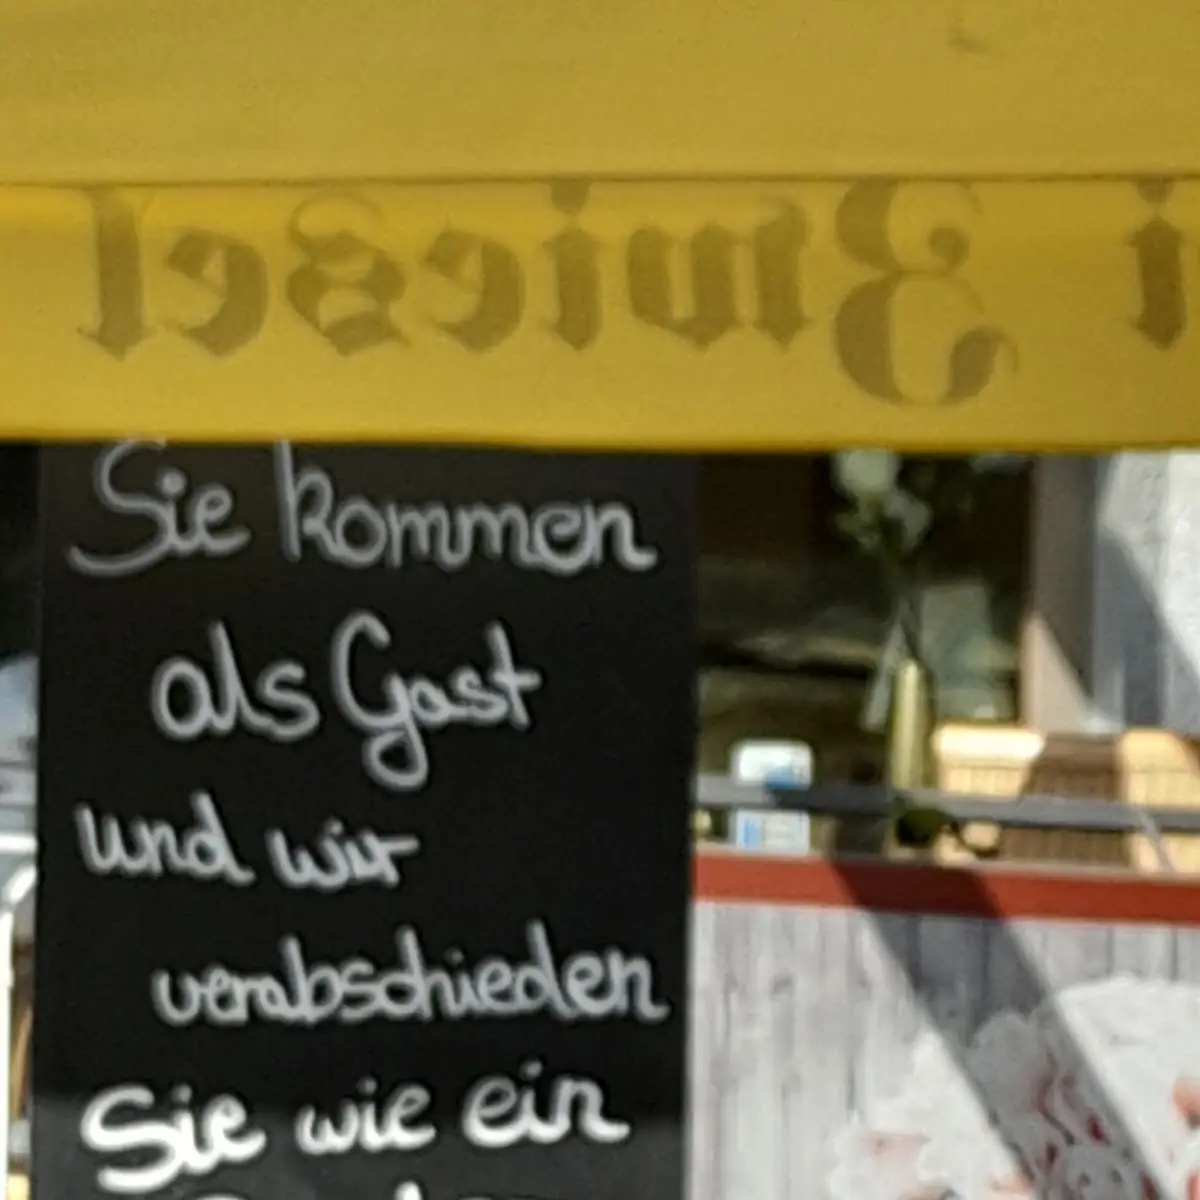 i Zwiesel
Sie kommen
als Gast
und wir
verabschieden
Sie wie ein